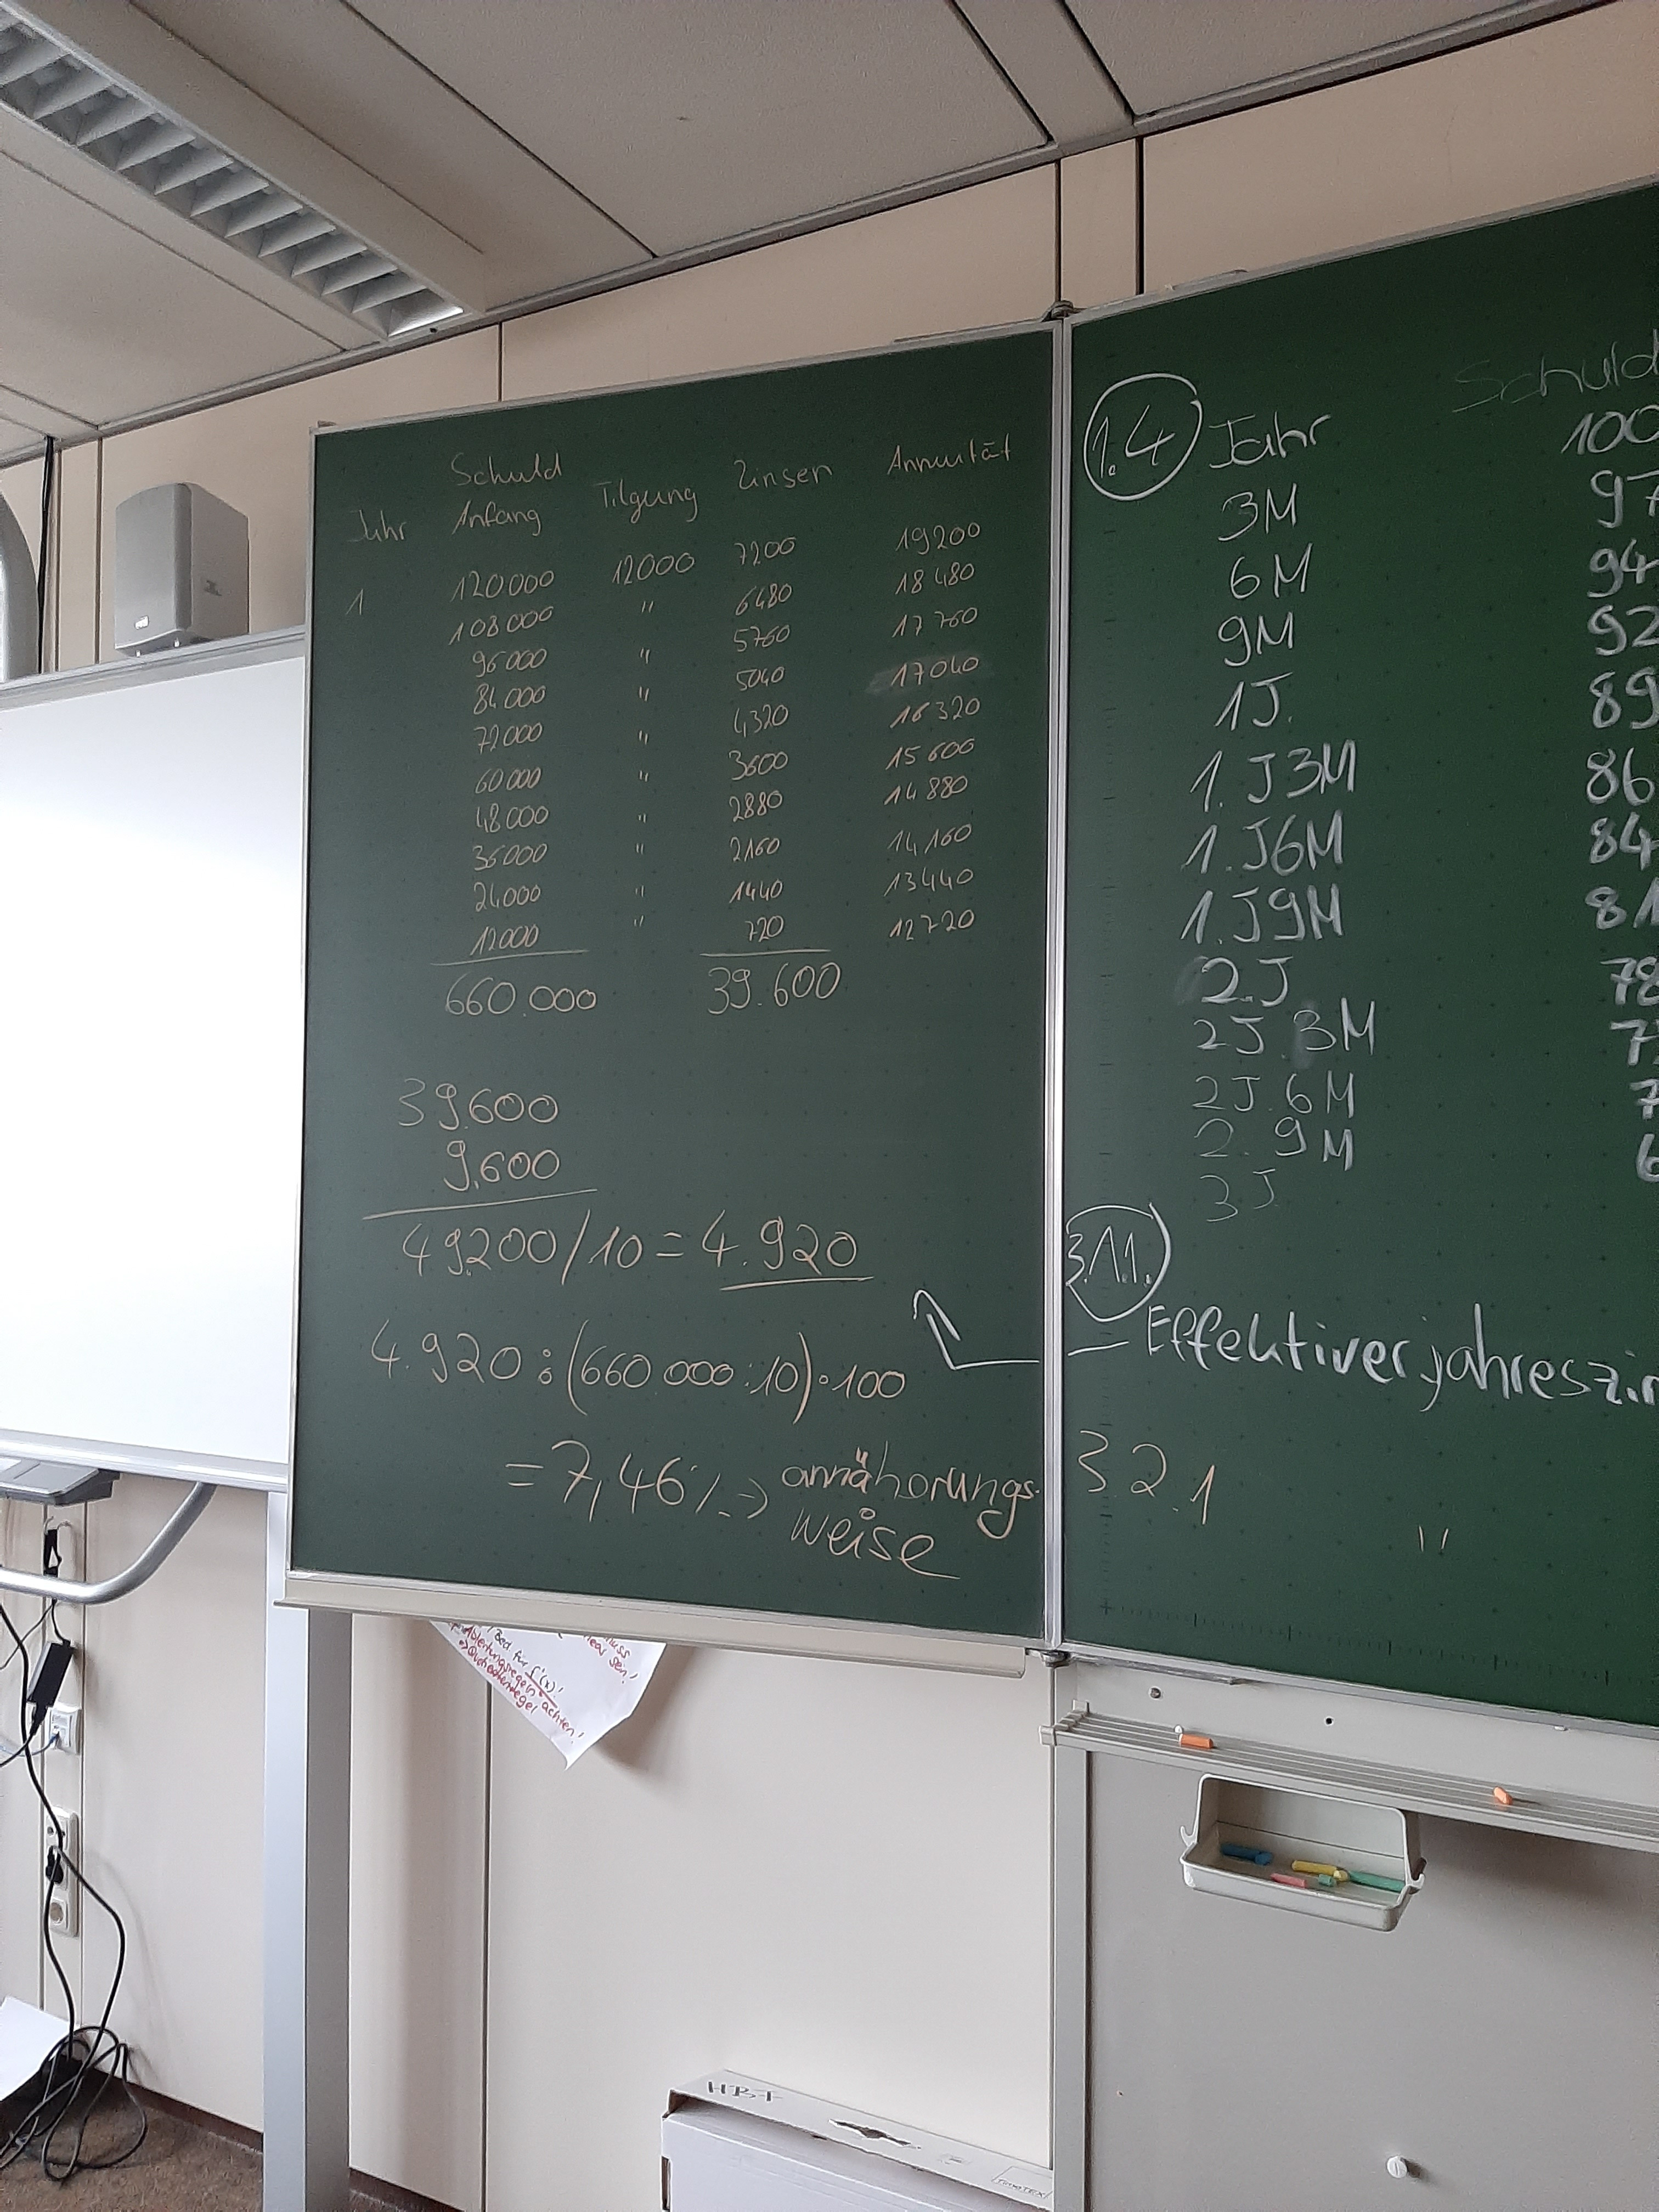 Schuld
Jahr Anfang Tilgung Zinsen Annuität
1 120000 12000 7200 19200
108000 " 6480 18480
96000 " 5760 17760
84000 " 5040 17040
72000 " 4320 16320
60000 " 3600 15600
48000 " 2880 14880
36000 " 2160 14160
24000 " 1440 13440
12000 " 720 12720
660.000 39.600
39.600
9.600
49.200/10 = 4.920
4.920 : (660 000 : 10) · 100
= 7,46% → annäherungs-
weise
1.4 Jahr Schuld
100
3M 97
6M 94
9M 92
1J. 89
1. J3M 86
1. J6M 84
1. J9M 81
2. J 78
2J. 3M 7
2J. 6M 7
2. 9M 6
3J
3.1.1.
Effektiver jahreszin
3.2.1
"
Bed für f'(x)!
Ableitungsregeln achten!
=> Quotientenregel
HBF